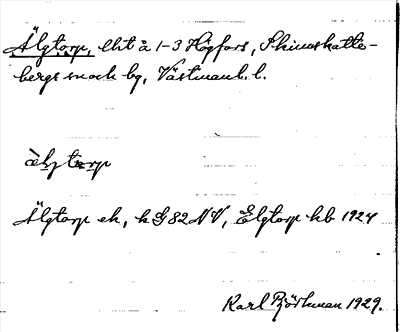 Älgtorp, lht å 1-3 Högfors, Skinnskatte-
bergs sn och bg, Västmanl. l.
älj torp
Älgtorp ek, k G 82 NV, Elgtorp hb 1924
Karl Björkman 1929.